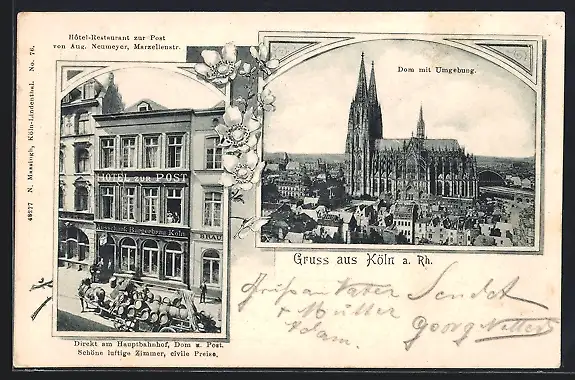 Hôtel-Restaurant zur Post
von Aug. Neumeyer, Marzellenstr.
Dom mit Umgebung.
HOTEL ZUR POST
Ausschank Bürgerbräu Köln
BRÄU
48277 N. Masstogh, Köln-Lindenthal. No. 76.
Gruss aus Köln a. Rh.
Vater Sendet
Mutter
Adam. Georg
Direkt am Hauptbahnhof, Dom u. Post.
Schöne luftige Zimmer, civile Preise.